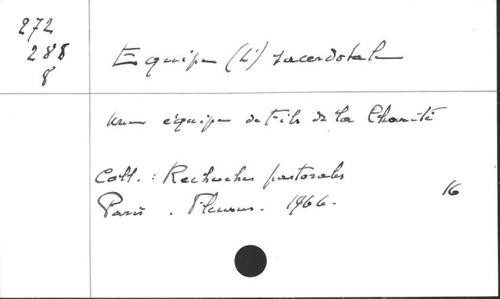 272
288
8
Equipe (L') sacerdotale
une équipe de Fils de la Charité
Coll. : Recherches pastorales
Paris . Fleurus . 1966.
16